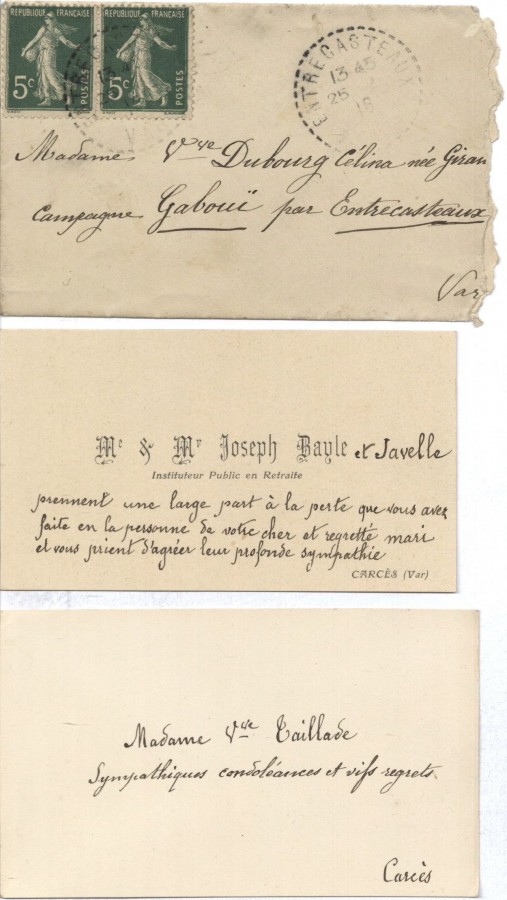 REPUBLIQUE FRANÇAISE REPUBLIQUE FRANÇAISE
5c POSTES 5c POSTES
ENTRECASTEAUX
13 45
25
16
Madame Vve Dubourg Célina née Giran
Campagne Gabouï par Entrecasteaux
Var
Me & Mr Joseph Bayle et Javelle
Instituteur Public en Retraite
prennent une large part à la perte que vous avez
faite en la personne de votre cher et regretté mari
et vous prient d'agréer leur profonde sympathie
CARCÈS (Var)
Madame Vve Taillade
Sympathiques condoléances et vifs regrets
Carcès